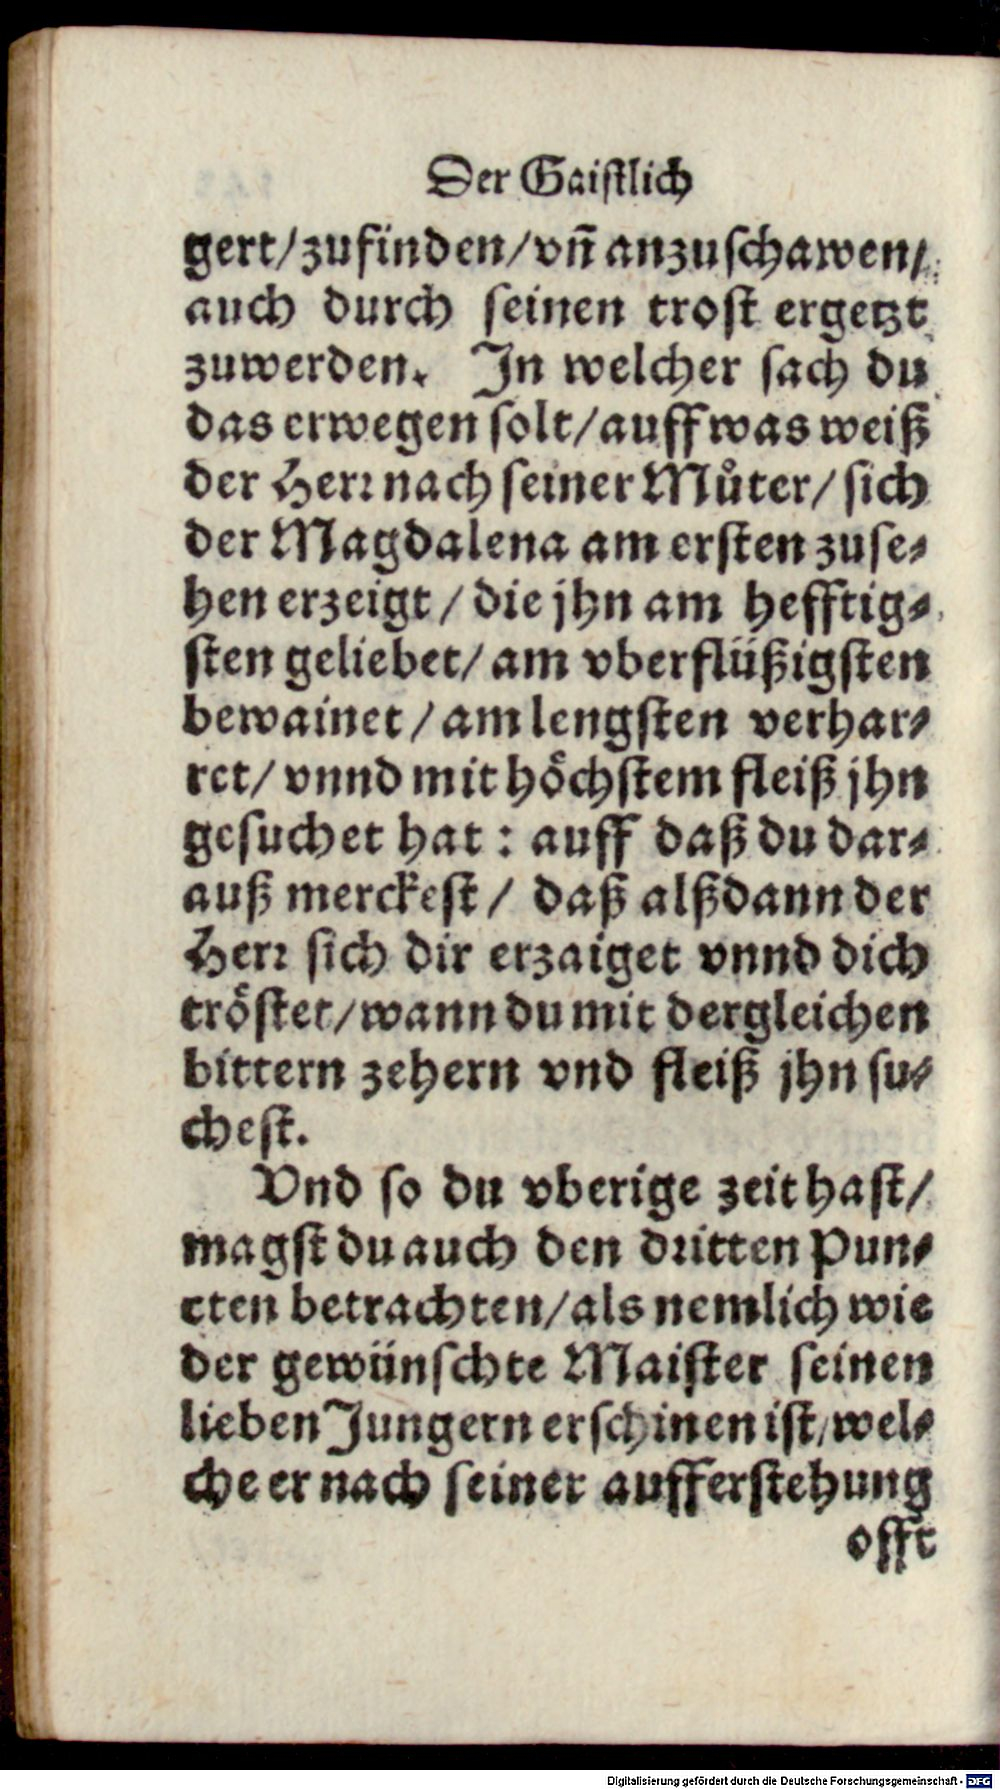 Der Gaiſtlich
gert/zufinden/vñ anzuſchawen/
auch durch ſeinen troſt ergetzt
zuwerden. In welcher ſach du
das erwegen ſolt/auff was weiß
der Herꝛ nach ſeiner Můter/ſich
der Magdalena am erſten zuſe⸗
hen erzeigt/die jhn am hefftig⸗
ſten geliebet/am vberflüßigſten
bewainet/am lengſten verhar⸗
ret/vnnd mit höchſtem fleiß jhn
geſuchet hat: auff daß du dar⸗
auß merckeſt/ daß alßdann der
Herꝛ ſich dir erzaiget vnnd dich
tröſtet/wann du mit dergleichen
bittern zehern vnd fleiß jhn ſu⸗
cheſt.
Vnd ſo du vberige zeit haſt/
magſt du auch den dꝛitten Pun⸗
cten betrachten/als nemlich wie
der gewünſchte Maiſter ſeinen
lieben Jungern erſchinen iſt/wel⸗
che er nach ſeiner aufferſtehung
offt
Digitalisierung gefördert durch die Deutsche Forschungsgemeinschaft - DFG